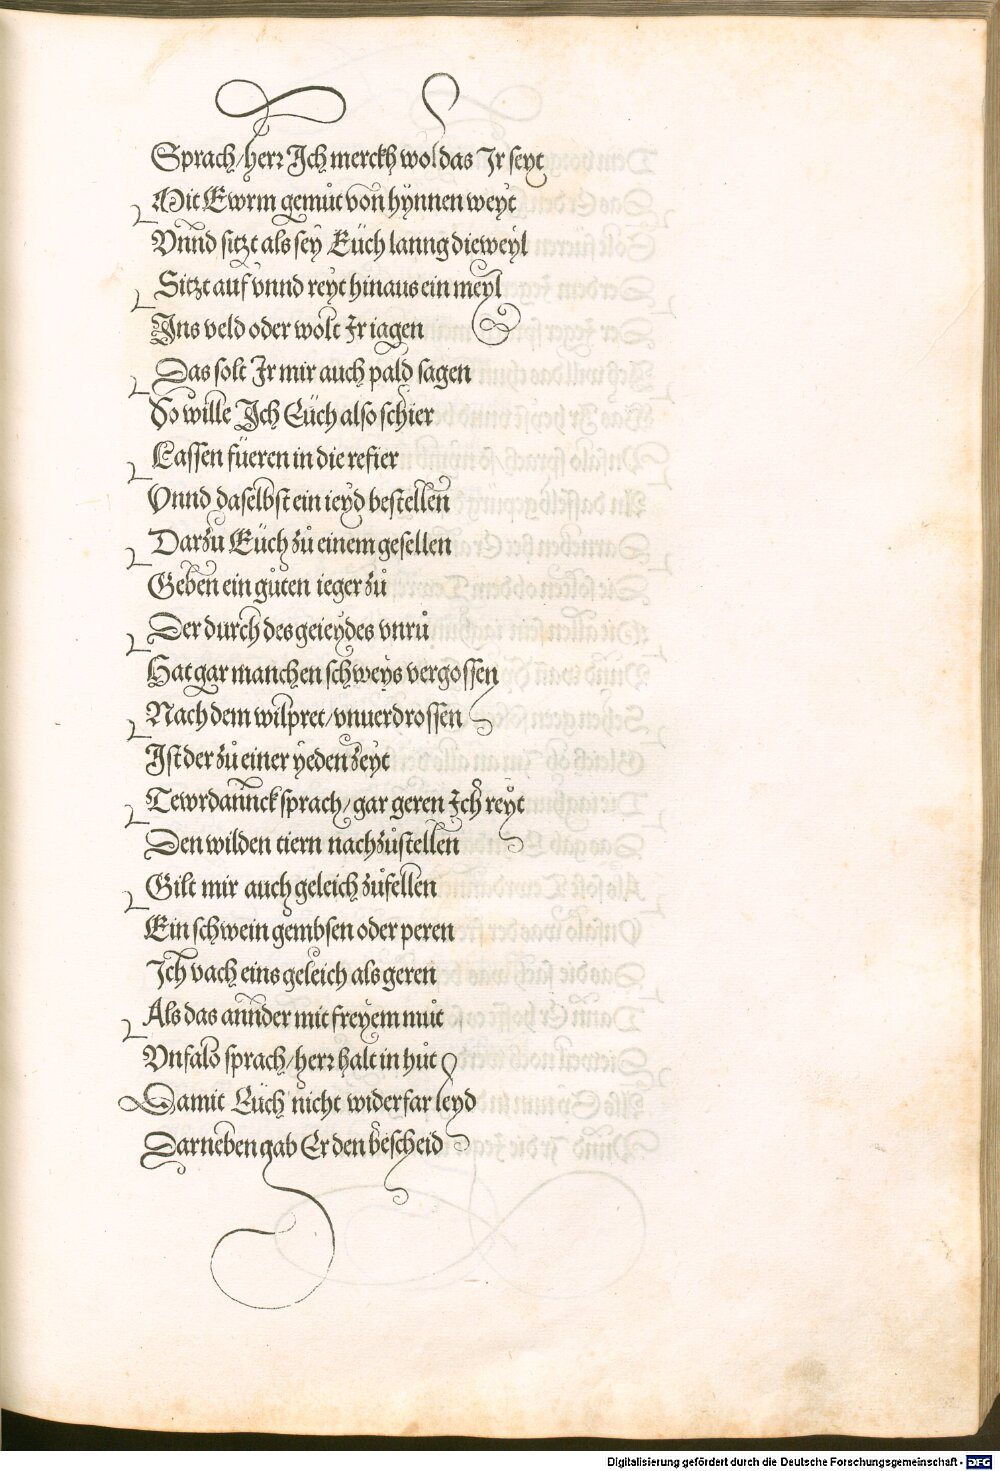 Sprach/herr Ich merckh wol das Ir seyt
Mit Ewrm gemůt von hynnen weyt
Vnnd sitzt als sey Eüch lanng die weyl
Sitzt auf vnnd reyt hinaus ein meyl
Ins veld oder wolt Ir iagen
Das solt Ir mir auch pald sagen
So wille Ich Eüch also schier
Lassen füeren in die refier
Vnnd daselbst ein ieyd bestellen
Darzu Eüch zů einem gesellen
Geben ein gůten ieger zů
Der durch des geieydes vnrů
Hat gar manchen schweys vergossen
Nach dem wilpret/vnuerdrossen
Ist der zů einer yeden zeyt
Tewrdannck sprach/gar geren Ich reyt
Den wilden tiern nachzůstellen
Gilt mir auch geleich zůfellen
Ein schwein gembsen oder peren
Ich vach eins geleich als geren
Als das annder mit freyem můt
Vnfalo sprach/herr halt in hůt
Damit Eüch nicht widerfar leyd
Darneben gab Er den bescheid
Digitalisierung gefördert durch die Deutsche Forschungsgemeinschaft - DFG